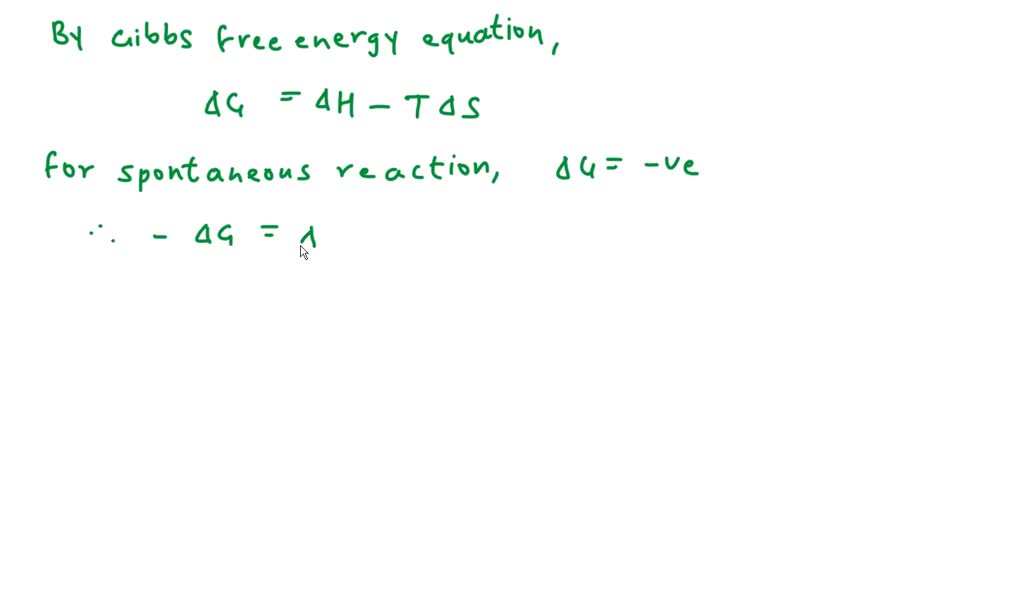 By Gibbs free energy equation,
ΔG = ΔH - TΔS
for spontaneous reaction, ΔG = -ve
∴ - ΔG =